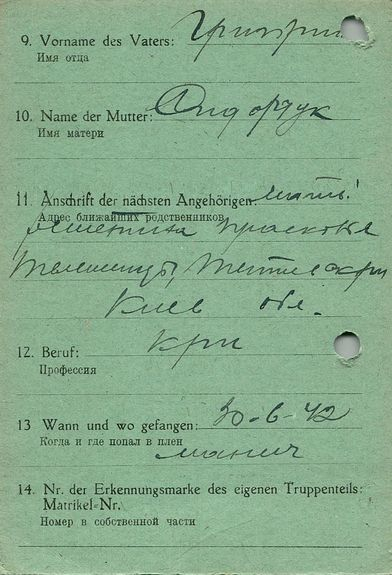 9. Vorname des Vaters:
Имя отца
10. Name der Mutter: Сидордук
Имя матери
11. Anschrift der nächsten Angehörigen мать:
Адрес ближайших родственников
Прасковья
Киев обл.
12. Beruf:
Профессия
13 Wann und wo gefangen: 30-6-42
Когда и где попал в плен
14. Nr. der Erkennungsmarke des eigenen Truppenteils:
Matrikel-Nr.
Номер в собственной части